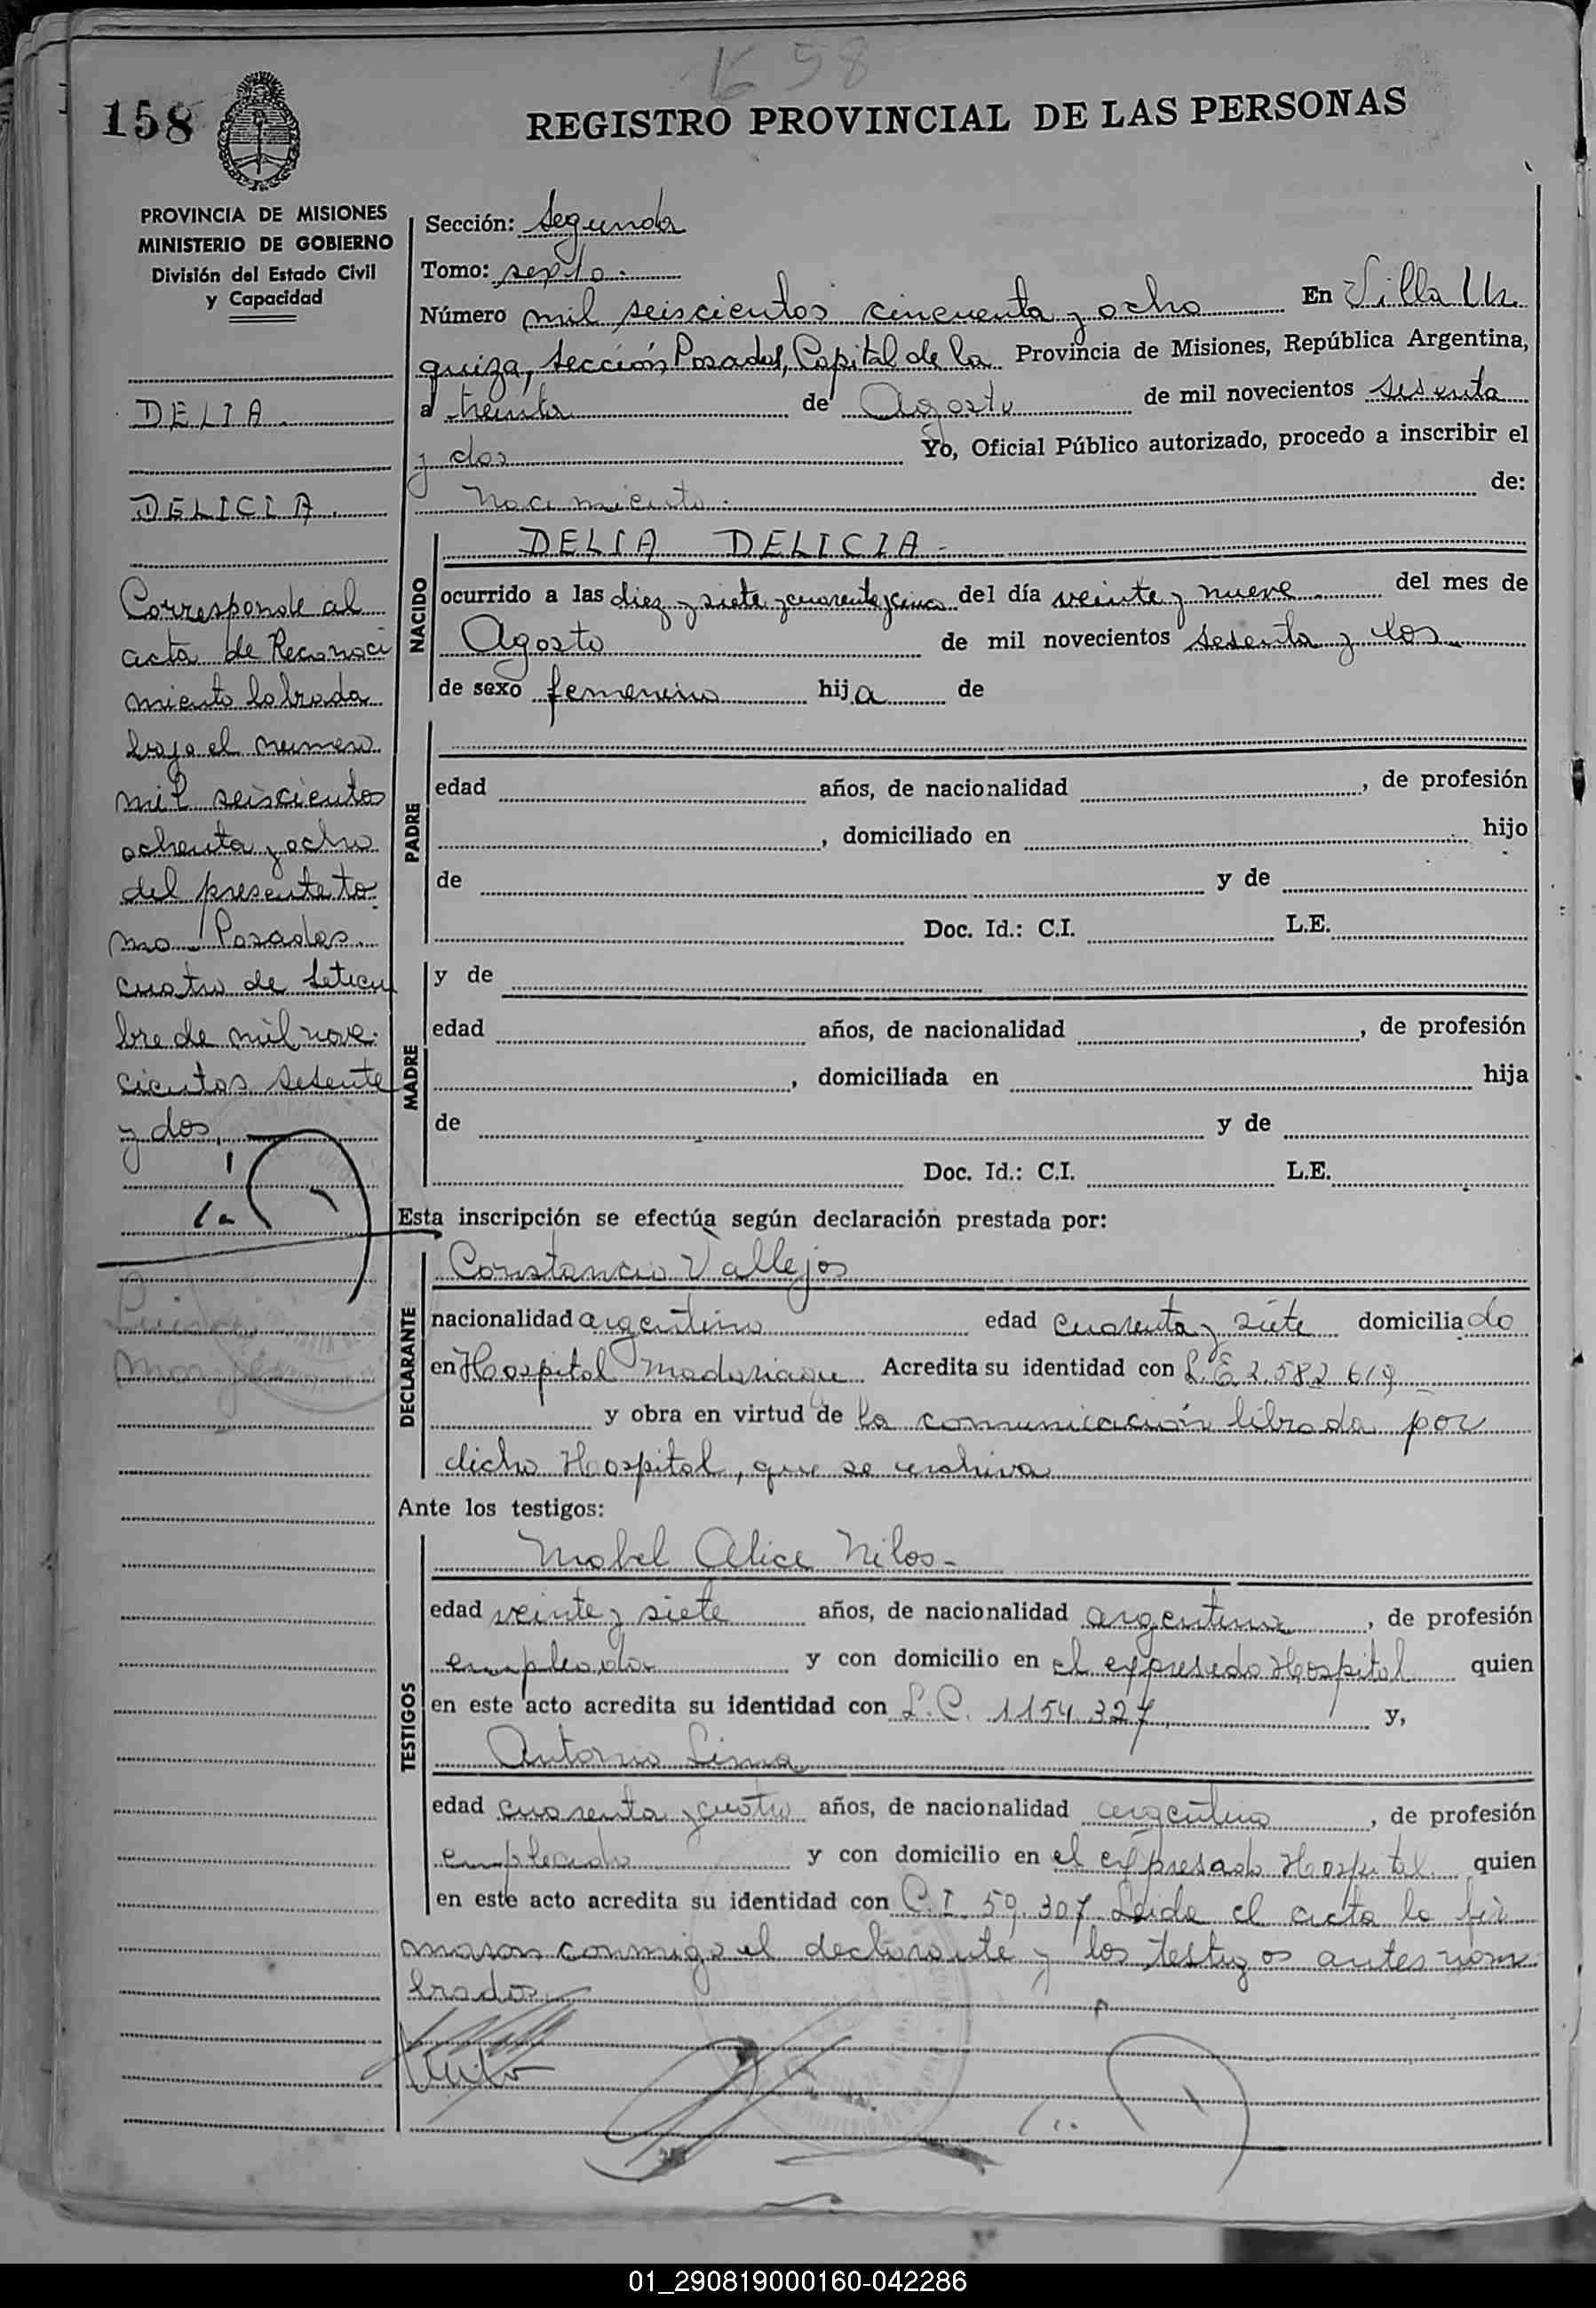 1658
158
REGISTRO PROVINCIAL DE LAS PERSONAS
PROVINCIA DE MISIONES
MINISTERIO DE GOBIERNO
División del Estado Civil
y Capacidad
DELIA.
DELICIA.
Corresponde al
acta de Reconoci
miento labrada
bajo el numero
mil seiscientos
ochenta y ocho
del presente to
mo. Posadas.
cuatro de Setiem
bre de mil nove-
cientos sesenta
y dos.
Sección: Segunda
Tomo: sexto.
Número mil seiscientos cincuenta y ocho En Villa Ur
quiza, Sección Posadas, Capital de la Provincia de Misiones, República Argentina,
a treinta de Agosto de mil novecientos sesenta
y dos Yo, Oficial Público autorizado, procedo a inscribir el
nacimiento. de:
NACIDO
DELIA DELICIA-
ocurrido a las diez y siete y cuarenta y cinco del día veinte y nueve del mes de
Agosto de mil novecientos sesenta y dos
de sexo femenino hija de
PADRE
edad años, de nacionalidad , de profesión
, domiciliado en hijo
de y de
Doc. Id.: C.I. L.E.
MADRE
y de
edad años, de nacionalidad , de profesión
, domiciliada en hija
de y de
Doc. Id.: C.I. L.E.
Esta inscripción se efectúa según declaración prestada por:
DECLARANTE
Constancio Vallejos
nacionalidad argentino edad cuarenta y siete domiciliado
en Hospital Madariaga Acredita su identidad con L.E 2.582.619
y obra en virtud de la comunicación librada por
dicho Hospital, que se archiva
Ante los testigos:
TESTIGOS
Mabel Alice Nilos-
edad veinte y siete años, de nacionalidad argentina, de profesión
empleada y con domicilio en el expresado Hospital quien
en este acto acredita su identidad con L.C. 1154.327 y,
Antonio Lima
edad cuarenta y cuatro años, de nacionalidad argentino, de profesión
empleado y con domicilio en el expresado Hospital quien
en este acto acredita su identidad con C.I. 59.307 Leida el acta la fir
maron conmigo el declarante y los testigos antes nom
brados.
01_290819000160-042286